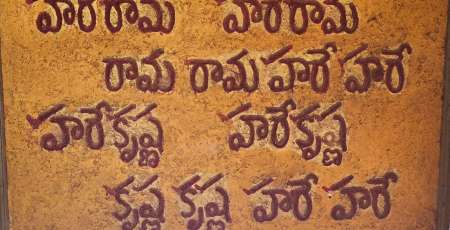 హరేరామ హరేరామ
రామ రామ హరే హరే
హరేకృష్ణ హరేకృష్ణ
కృష్ణ కృష్ణ హరే హరే